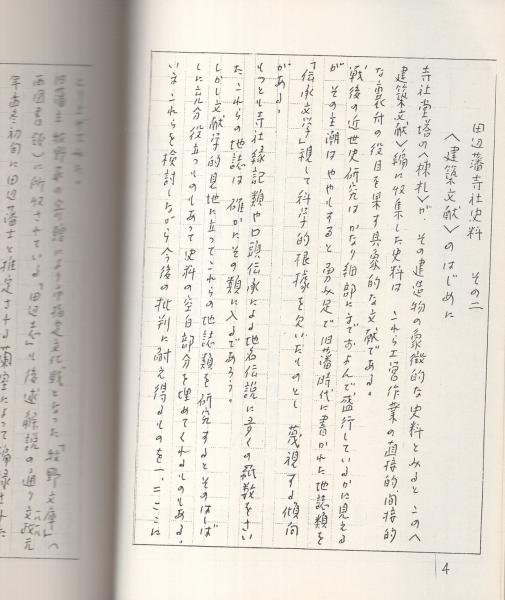 田辺藩寺社史料　その二
〈建築文献〉のはじめに
寺社堂塔の〈棟札〉が　その建造物の象徴的な史料とみると　この〈
建築文献〉編に収集した史料は　これら工営作業の直接的間接的
な裏付の役目を果す具象的な文献である。
戦後の近世史研究は　かなり細部にまでおよんで盛行しているかに見える
が　その主潮は　ややもすると　勇み足で旧藩時代に書かれた地誌類を
「伝承文学」視して科学的根拠を欠いたものとし　蔑視する傾向
がある。
もっとも寺社縁記類や口頭伝承による地名伝説に多くの紙数をさい
た　これらの地誌は　確かにその類に入るであろう。
しかし文献学的見地に立ってこれらの地誌類を研究するとそのはしば
しに充分役立つものもあって史料の空白部分を埋めてくれるものもある。
いま　これらを検討しながら今後の批判に耐え得るものを一、二ここに
4
とりあげてみた。
旧藩主牧野家の寄贈により市指定文化財となった「牧野文庫」へ
に所収されている「田辺志」は後述解説の通り文政元
年あき初旬に田辺藩士と推定される蘭室によって編録された